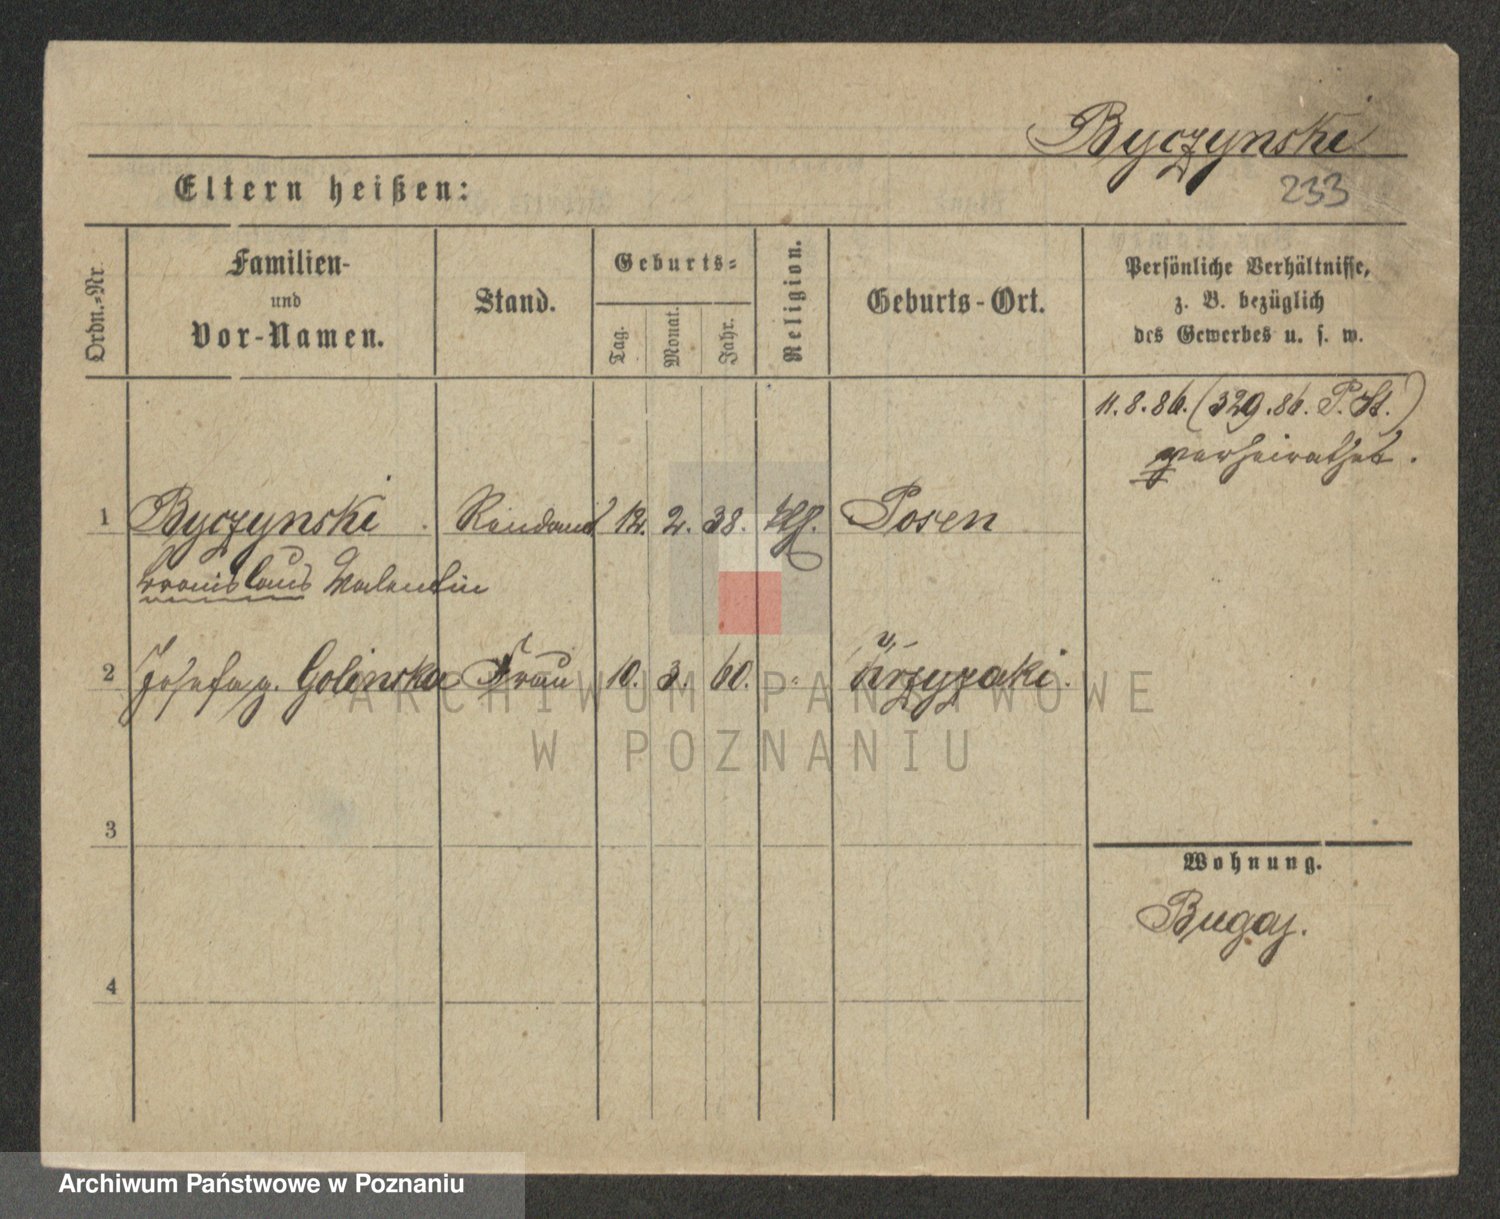 Byczynski
233
Eltern heißen:
Ordn.-Nr.
Familien-
und
Vor-Namen.
Stand.
Geburts-
Tag.
Monat.
Jahr.
Religion.
Geburts-Ort.
Persönliche Verhältnisse,
z. B. bezüglich
des Gewerbes u. s. w.
11.8.86. (329.86. P. St.)
verheirathet.
1 Byczynski. Rendant 12. 2. 38. Posen
Bronislaus Valentin
2 Josefa g. Golinska Frau 10. 3. 60. " Krzyzaki.
ARCHIWUM PAŃSTWOWE
W POZNANIU
3
Wohnung.
Bugaj.
4
Archiwum Państwowe w Poznaniu